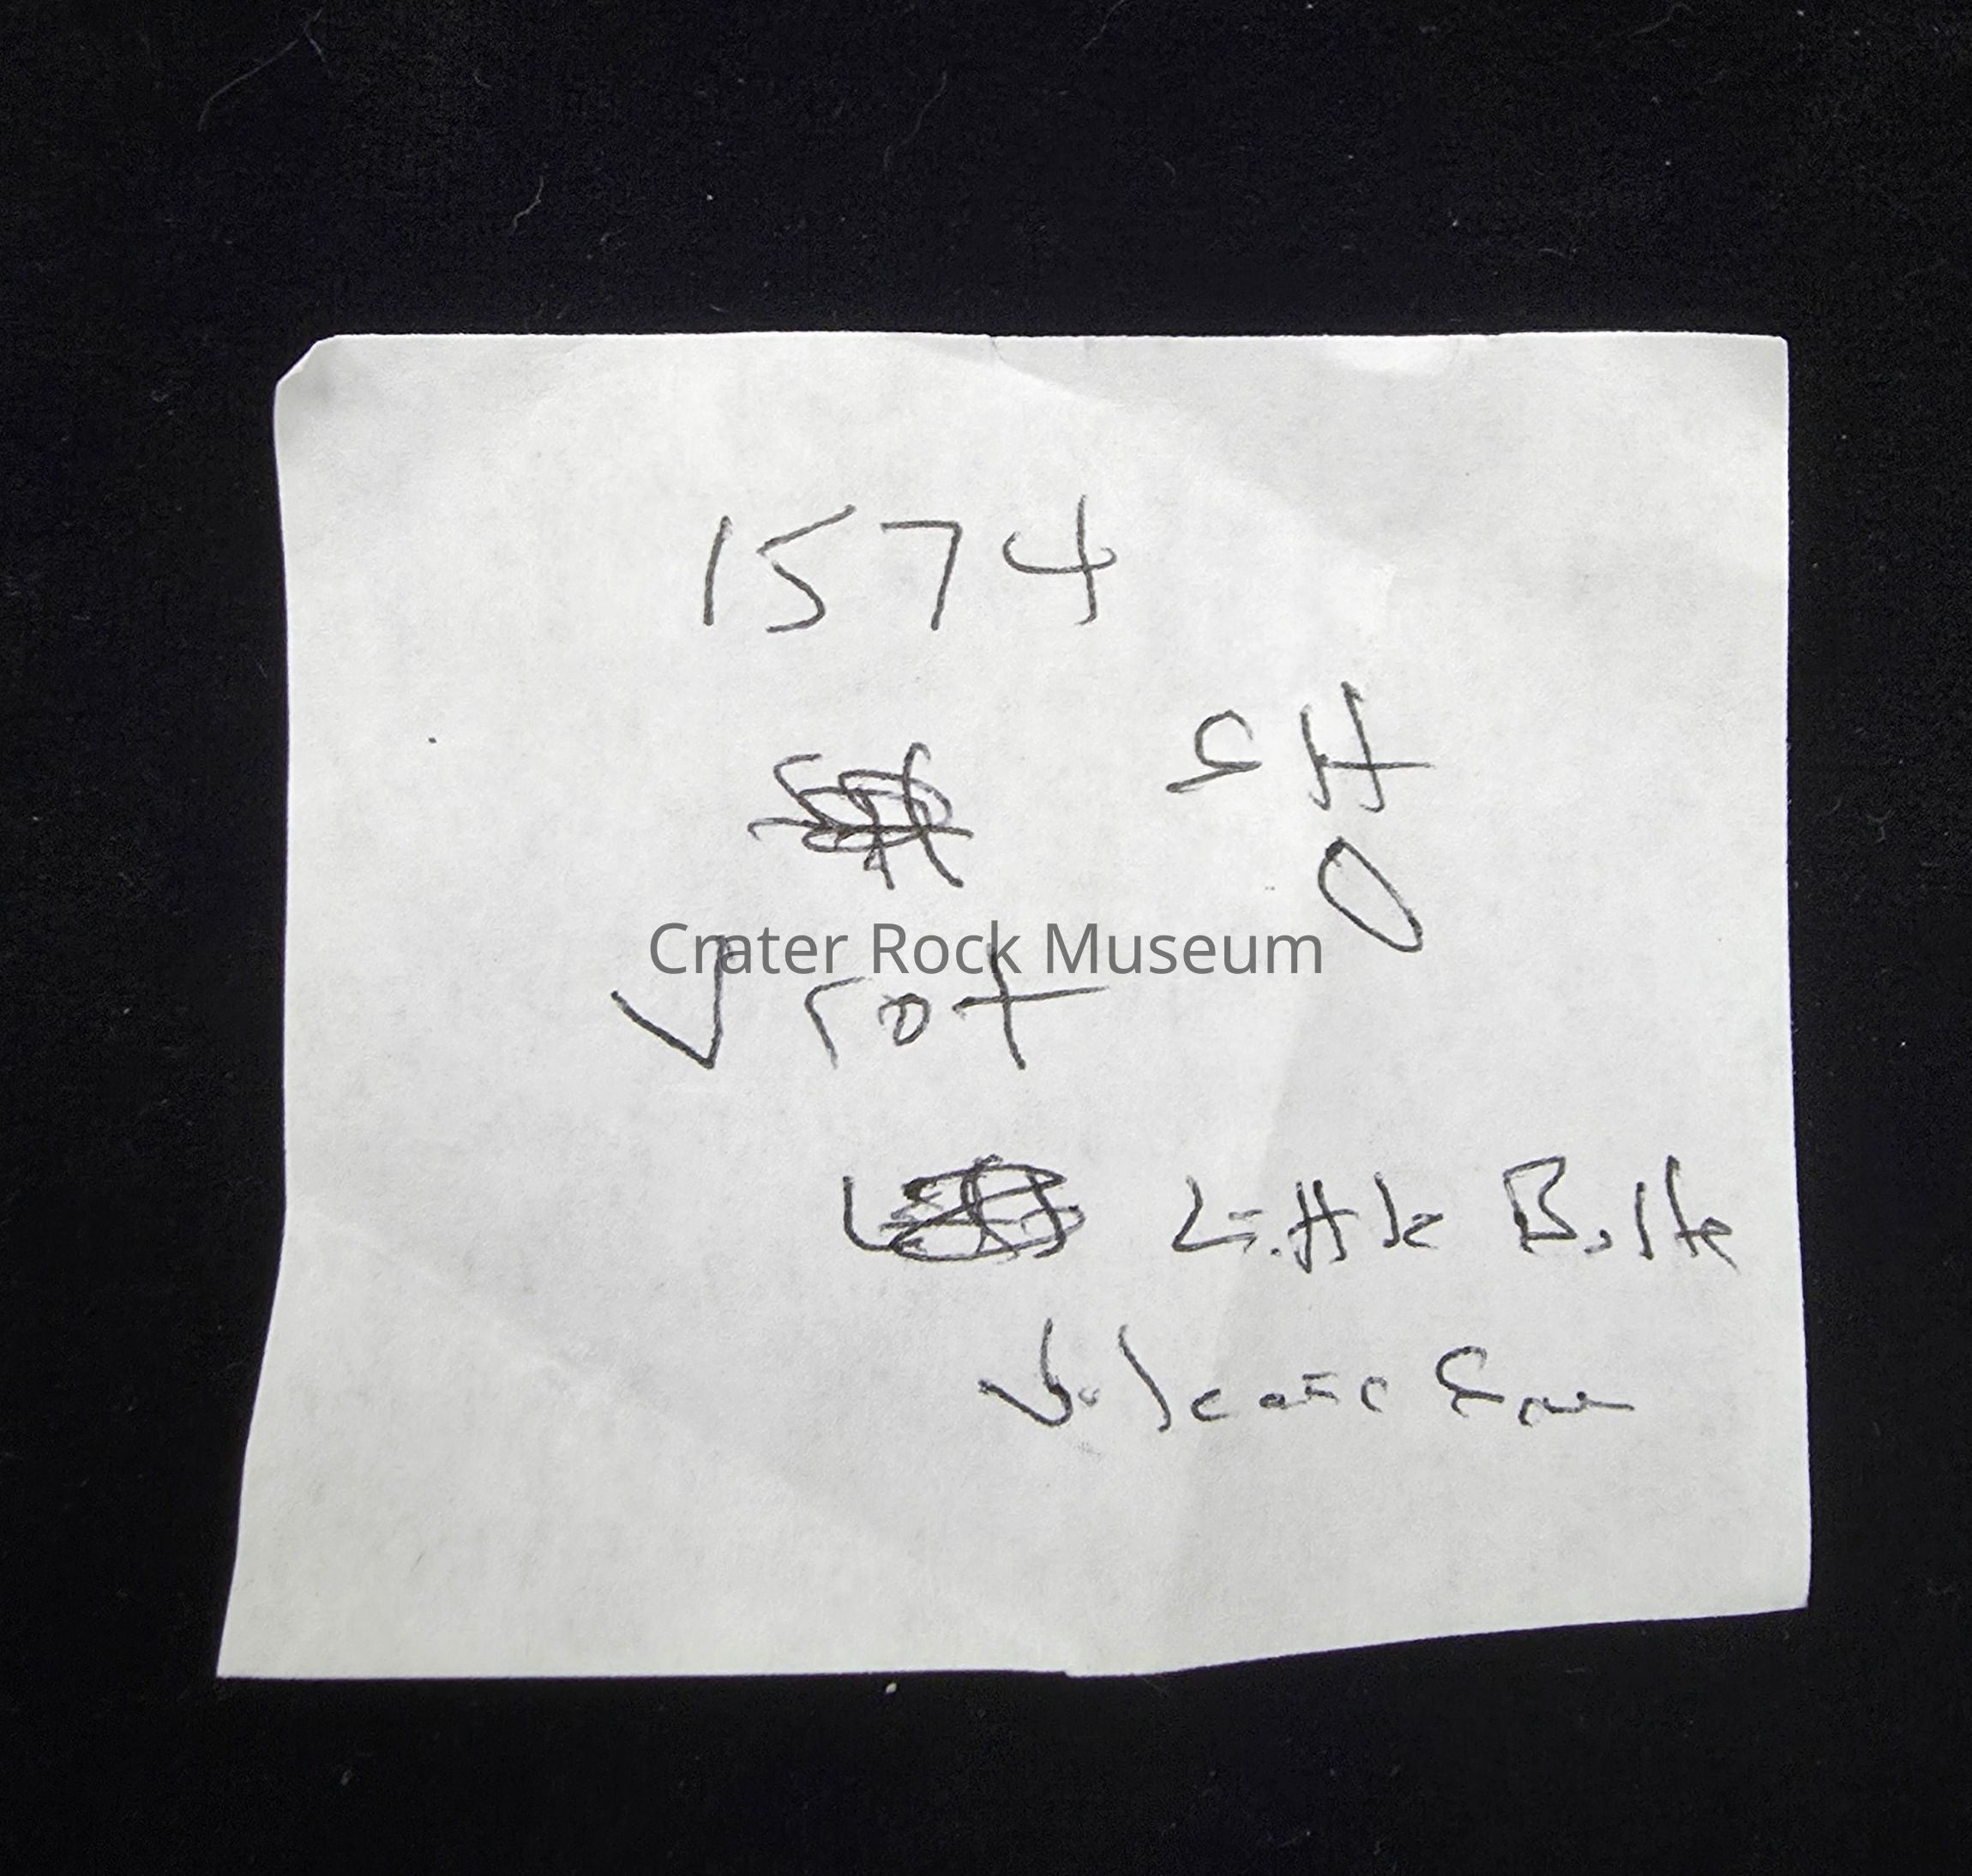 1574
SH
0
Crater Rock Museum
√ rot
Little Butte
Volcanic